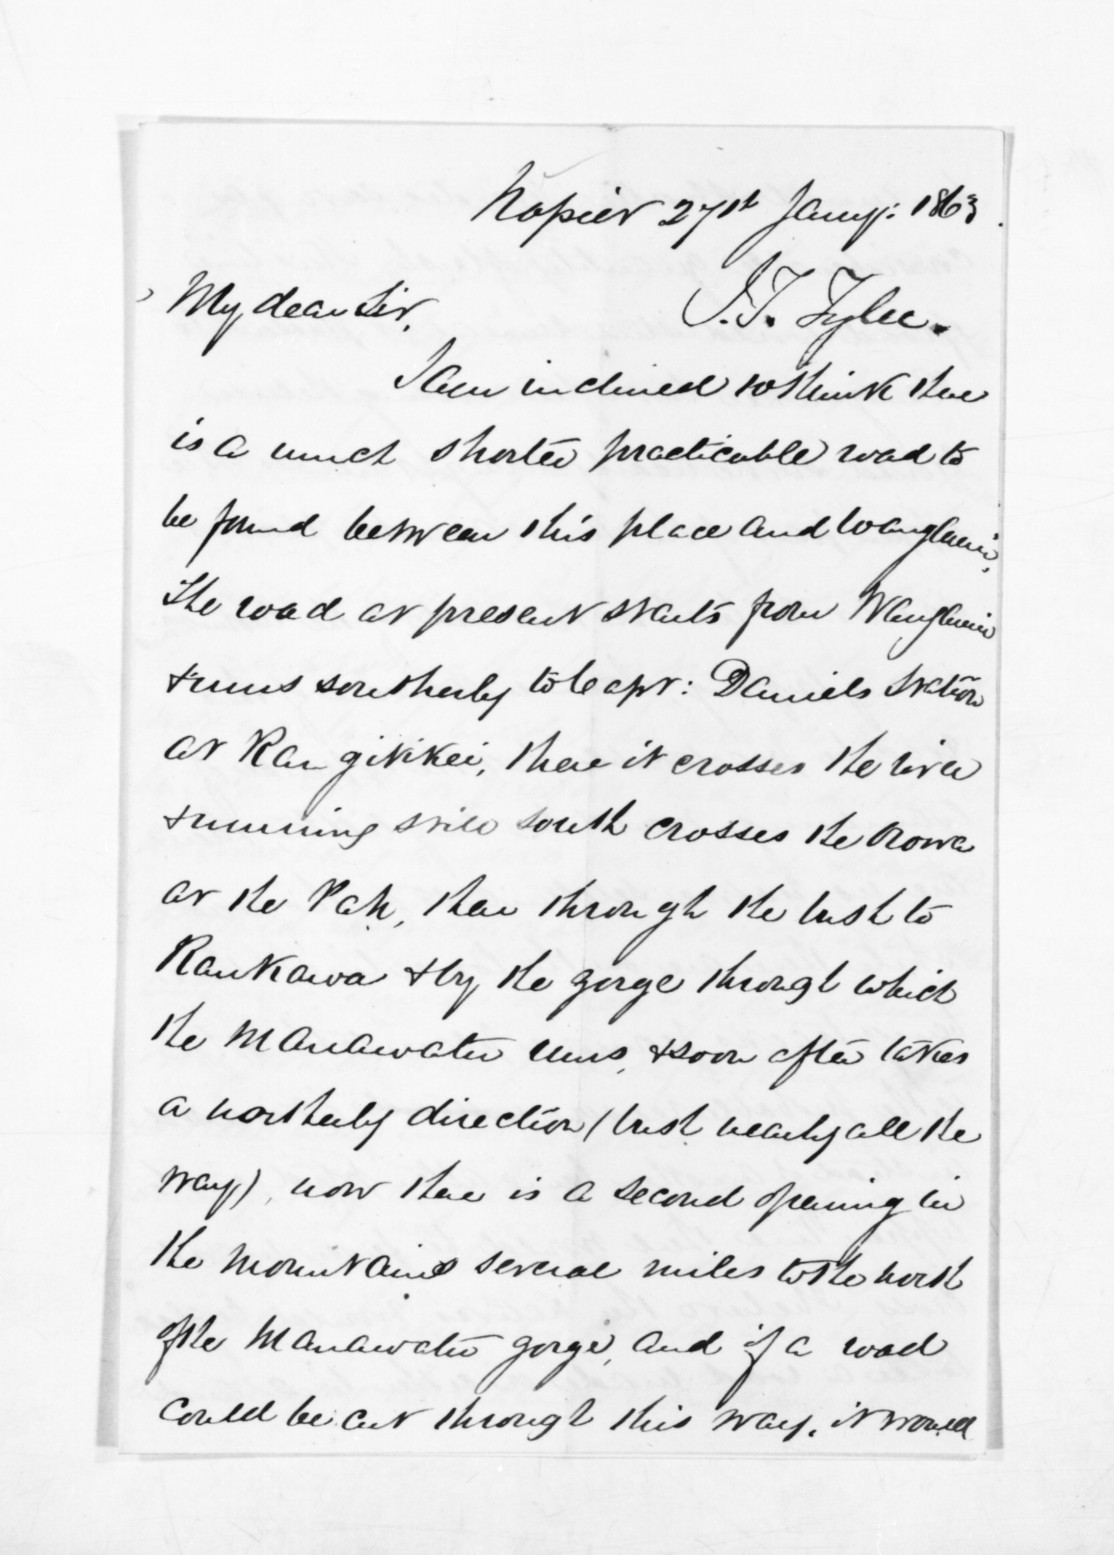 Napier 27th Jany: 1863
My dear Sir,
J. T. Tylee.
I am inclined to think there
is a much shorter practicable road to
be found between this place and Wanganui,
the road at present starts from Wanganui
& runs southerly to Capt: Daniels Station
at Rangitikei, there it crosses the river
& running still south crosses the Orowa
at the Pah, then through the bush to
Raukawa & by the gorge through which
the Manawatu runs, & soon after takes
a northerly direction (bush nearly all the
way), now there is a second opening in
the mountains several miles to the north
of the Manawatu gorge, and if a road
could be cut through this way, it would